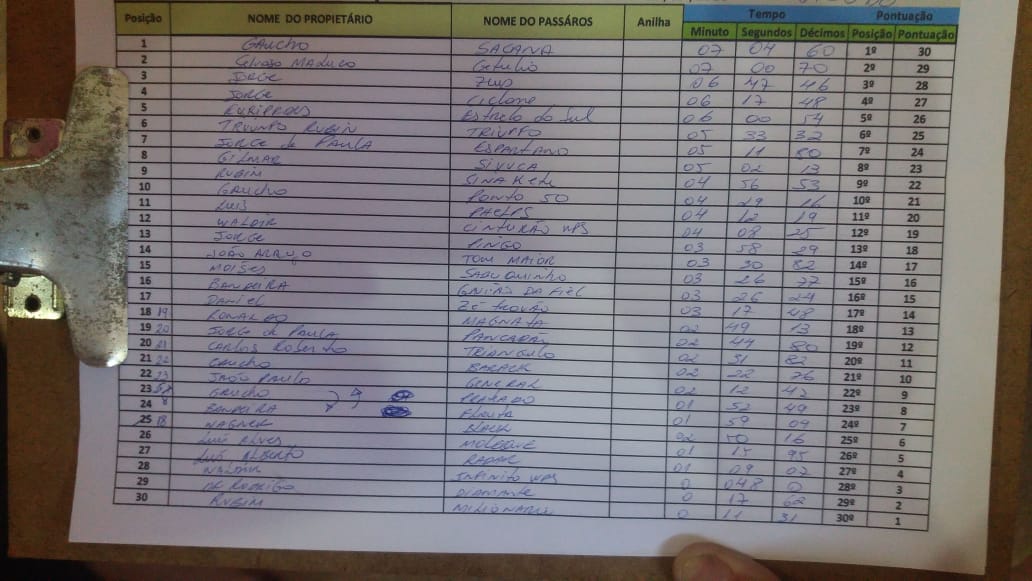 Tempo Pontuação
Posição NOME DO PROPIETÁRIO NOME DO PASSÁROS Anilha Minuto Segundos Décimos Posição Pontuação
1 GAUCHO SACANA 07 04 60 1º 30
2 Celvoso MADUCO Getulio 07 00 70 2º 29
3 JORGE ZEUS 06 47 46 3º 28
4 JORGE Ciclone 06 17 48 4º 27
5 EURIPEDES Estrela do Sul 06 00 54 5º 26
6 TRIUNFO RUBIN TRIUFFO 05 33 32 6º 25
7 JORGE de PAULA ESPARTANO 05 11 80 7º 24
8 GILMAR SIVUCA 05 02 13 8º 23
9 RUBIM SINAKETE 04 56 53 9º 22
10 GAUCHO PONTO 50 04 29 16 10º 21
11 LUIS PHELPS 04 12 19 11º 20
12 WALDIR CINTURÃO WPS 04 08 25 12º 19
13 JORGE PINGO 03 58 29 13º 18
14 JOÃO ARAUJO TOM MAIOR 03 30 82 14º 17
15 MOISES SABUQUINHO 03 26 77 15º 16
16 BANDEIRA GAVIÃO DA FIEL 03 26 24 16º 15
17 DANIEL ZÉ TROVÃO 03 17 48 17º 14
18 19 RONALDO MAGNATA 02 49 13 18º 13
19 20 JORGE de PAULA PANCADÃO 02 44 80 19º 12
20 21 CARLOS Roberto TRIANGULO 02 31 82 20º 11
21 22 GAUCHO BARACK 02 22 76 21º 10
22 23 JOÃO PAULO GENERAL 02 12 42 22º 9
23 GAUCHO PRATEADO 01 52 49 23º 8
24 BANDEIRA FLAUTA 01 59 09 24º 7
25 18 WAGNER BLACK 02 50 16 25º 6
26 LUIS ALVES MOLEQUE 01 15 95 26º 5
27 LUIS ALBERTO RADAR 01 09 02 27º 4
28 WALDIR INFINITO WPS 0 048 0 28º 3
29 DR RODRIGO DIAMANTE 0 17 62 29º 2
30 RUBIM MILIONARIO 0 11 31 30º 1